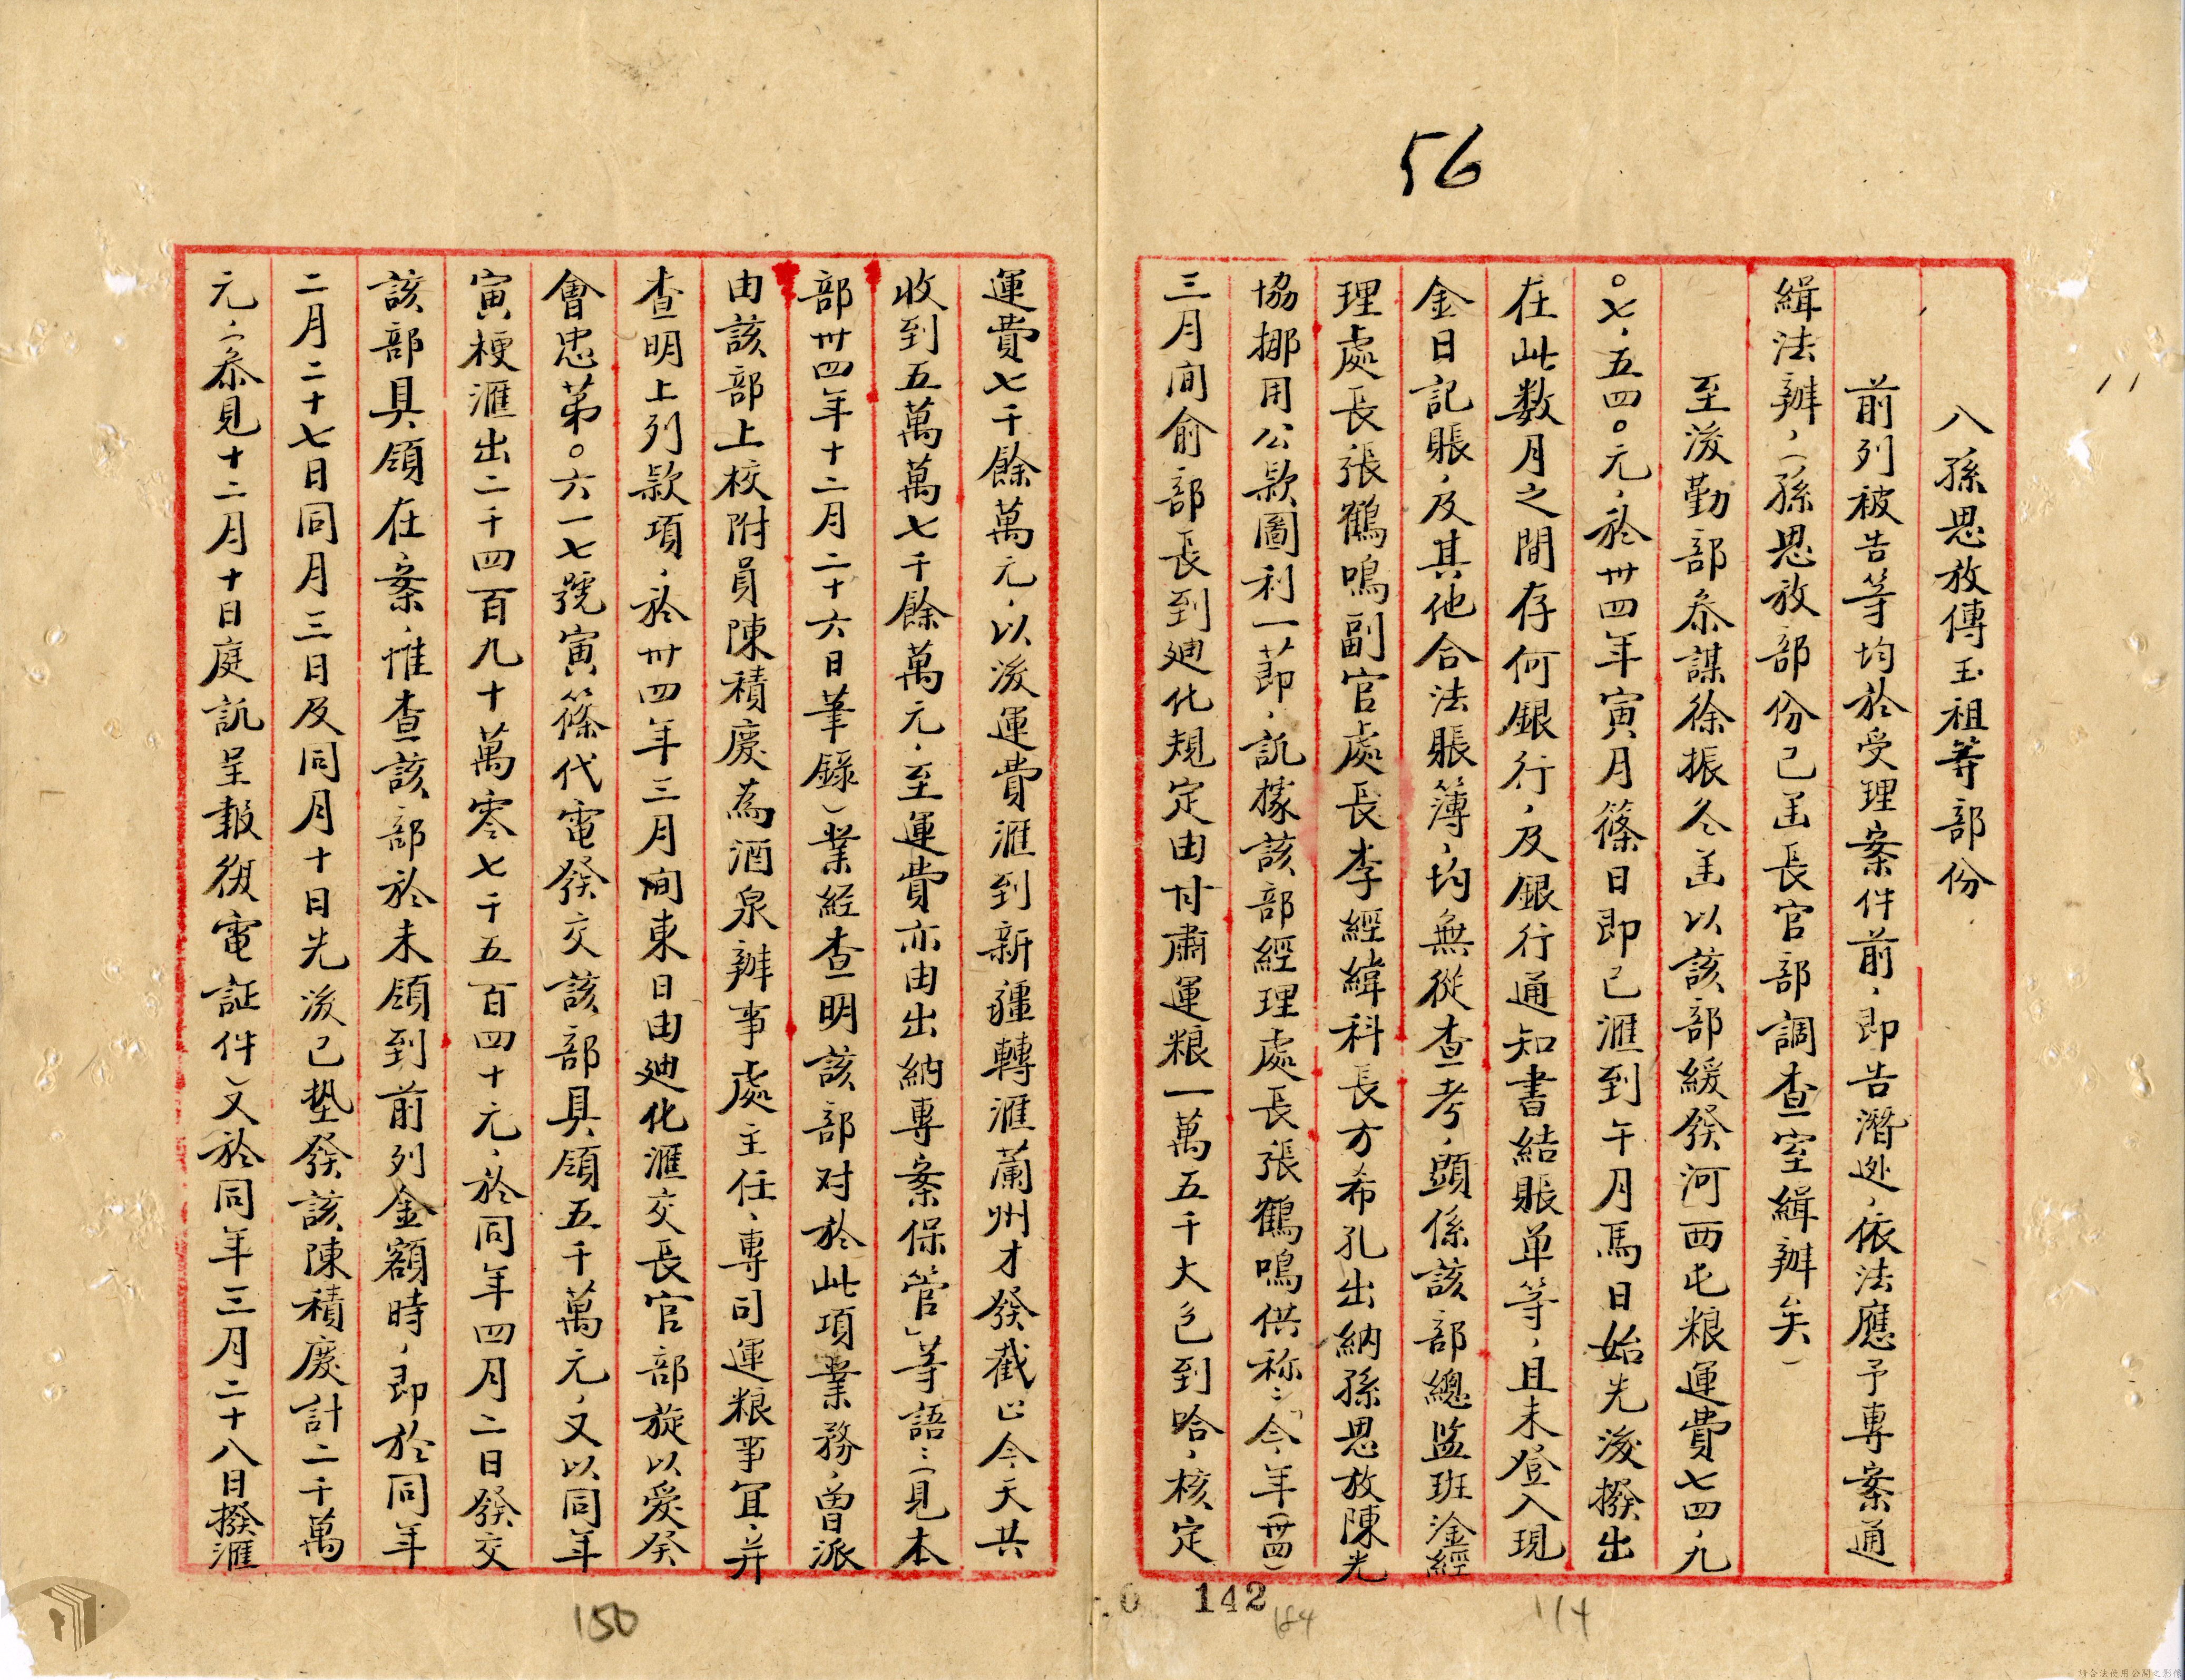 56
八孫思放傅玉祖等部份
前列被告等均於受理案件前，即告潛逃，依法應予專案通
緝法辦，（孫思放部份已函長官部調查室緝辦矣）
至後勤部参謀徐振冬函以該部緩發河西屯粮運費七四，九
〇七，五四〇元，於卅四年寅月篠日即已滙到午月馬日始先後撥出
在此数月之間存何銀行，及銀行通知書結賬单等，且未登入現
金日記賬，及其他合法賬簿，均無從查考，顕係該部總監班淦經
理處長張鶴鳴副官處長李經緯科長方希孔出納孫思放陳光
協挪用公款圖利一節，訊據該部經理處長張鶴鳴供称：「今年（卅四）
三月间俞部長到廸化規定由甘肅運粮一萬五千大包到哈，核定
運費七千餘萬元，以後運費滙到新疆轉滙蘭州才發截止今天共
收到五萬萬七千餘萬元，至運費亦由出納專案保管」等語：（見本
部卅四年十二月二十六日筆錄）業经查明該部对於此項業務，曾派
由該部上校附員陳積慶為酒泉辦事處主任，專司運粮事宜，并
查明上列款項，於卅四年三月间東日由廸化滙交長官部旋以爰癸
會忠第〇六一七號寅篠代電發交該部具領五千萬元，又以同年
寅梗滙出二千四百九十萬零七千五百四十元，於同年四月二日發交
該部具領在案，惟查該部於未領到前列金額時，即於同年
二月二十七日同月三日及同月十日先後已墊發該陳積慶計二千萬
元，（叅見十二月十日庭訊呈報復電証件）又於同年三月二十八日撥滙
142
150
184
114
請合法使用公開之影像